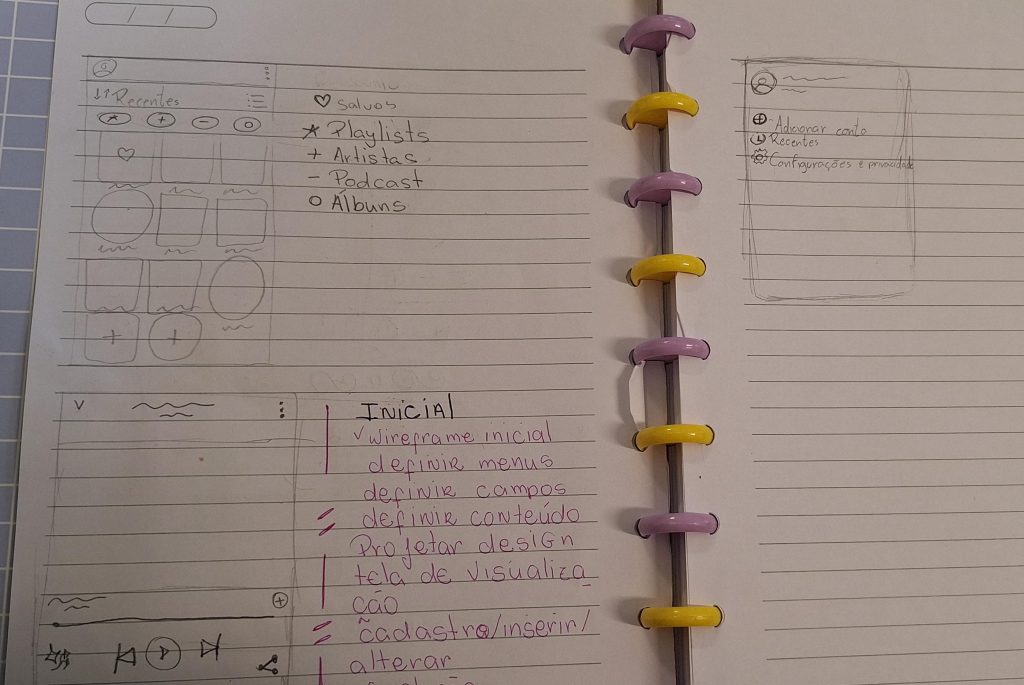 Recentes
Salvos
Playlists
+ Artistas
- Podcast
o Álbuns
INICIAL
wireframe inicial
definir menus
definir campos
definir conteúdo
Projetar design
tela de visualiza_
ção
cadastro/inserir/
alterar
Adicionar conta
Recentes
Configurações e privacidade